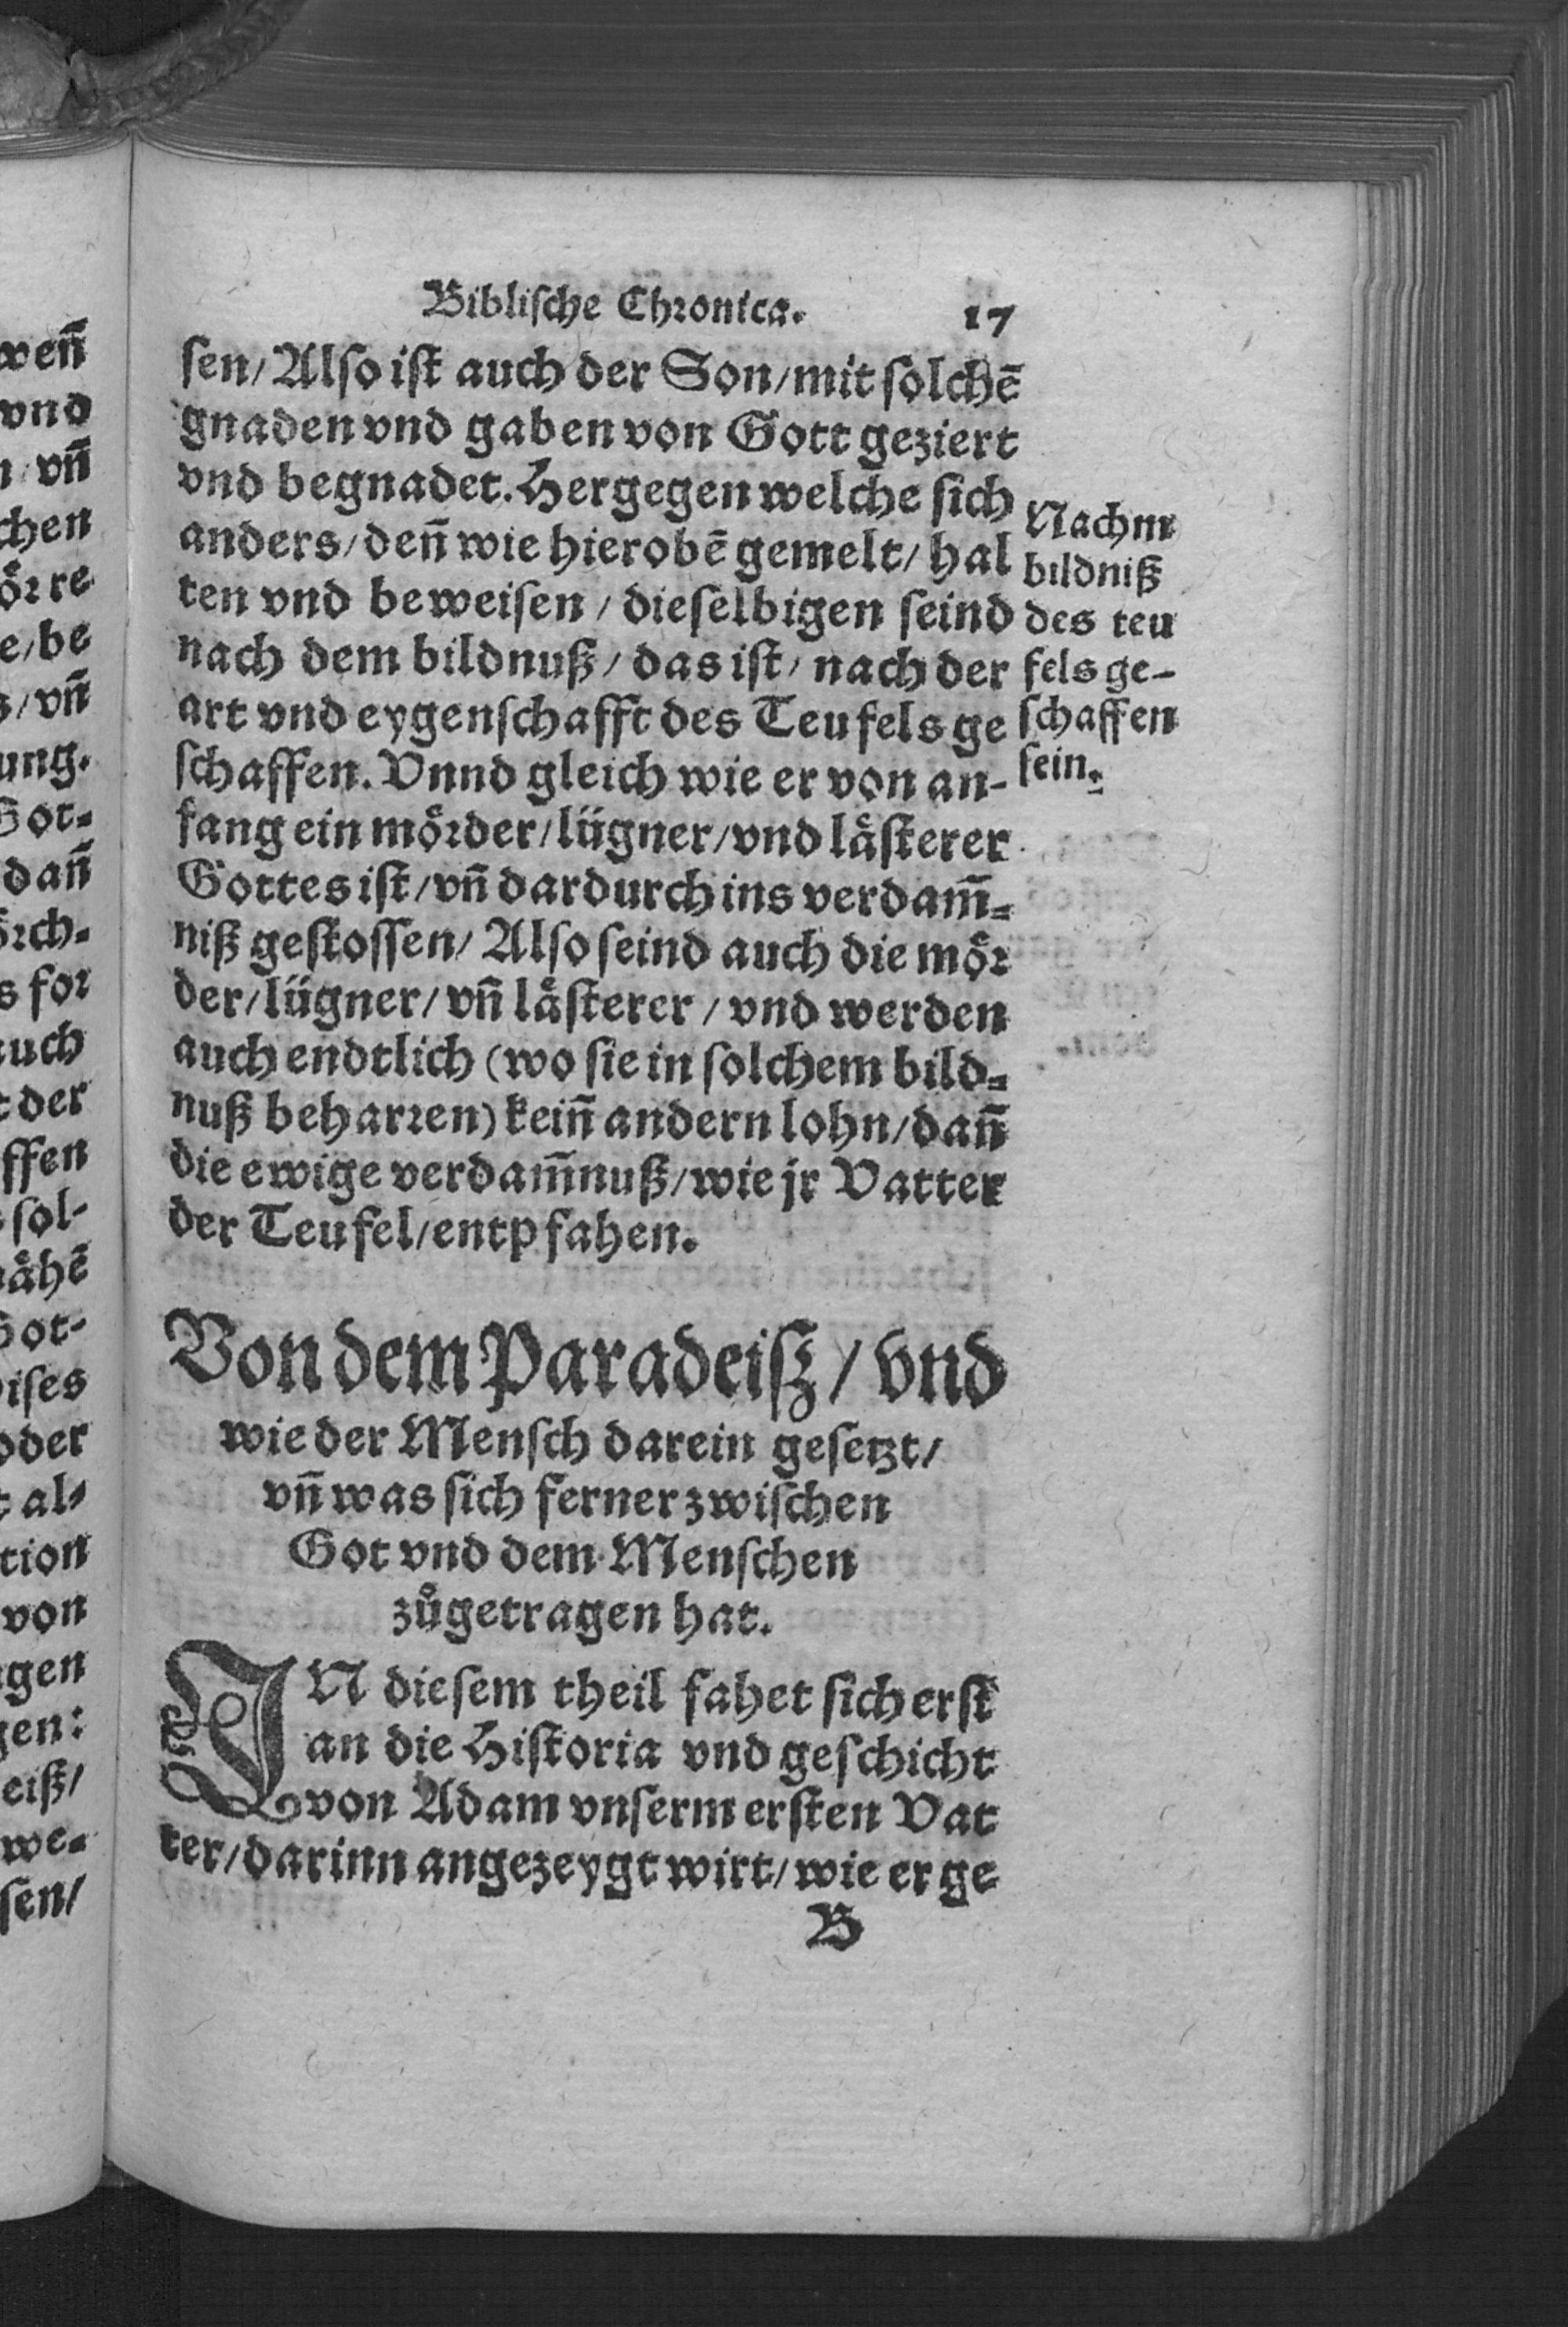 Biblische Chronica. 17
sen/ Also ist auch der Son/mit solchē
gnaden vnd gaben von Gott geziert
vnd begnadet. Hergegen welche sich
anders/ deñ wie hierobē gemelt/ hal
ten vnd beweisen / dieselbigen seind
nach dem bildnuß/ das ist/ nach der
art vnd eygenschafft des Teufels ge
schaffen. Vnnd gleich wie er von an-
fang ein moͤrder/luͤgner/vnd laͤsterer
Gottes ist/vñ dardurch ins verdam̃-
niß gestossen/ Also seind auch die moͤr
der/luͤgner/ vñ laͤsterer / vnd werden
auch endtlich (wo sie in solchem bild-
nuß beharren) keiñ andern lohn/dañ
die ewige verdam̃nuß/wie jr Vatter
der Teufel/entpfahen.
Nachm
bildniß
des teu
fels ge-
schaffen
sein.
Von dem Paradeiß / vnd
wie der Mensch darein gesetzt/
vñ was sich ferner zwischen
Got vnd dem Menschen
zuͦgetragen hat.
IN diesem theil fahet sich erst
an die Historia vnd geschicht
von Adam vnserm ersten Vat
ter/darinn angezeygt wirt/ wie er ge
B
wenñ
vnd
vñ
chen
oͤr re
e/be
s/vñ
ung.
Got-
dañ
oͤrch-
s for
auch
t der
ffen
sol-
aͤhē
Got-
ises
oder
t al-
tion
von
gen
gen:
eiß/
we-
sen/